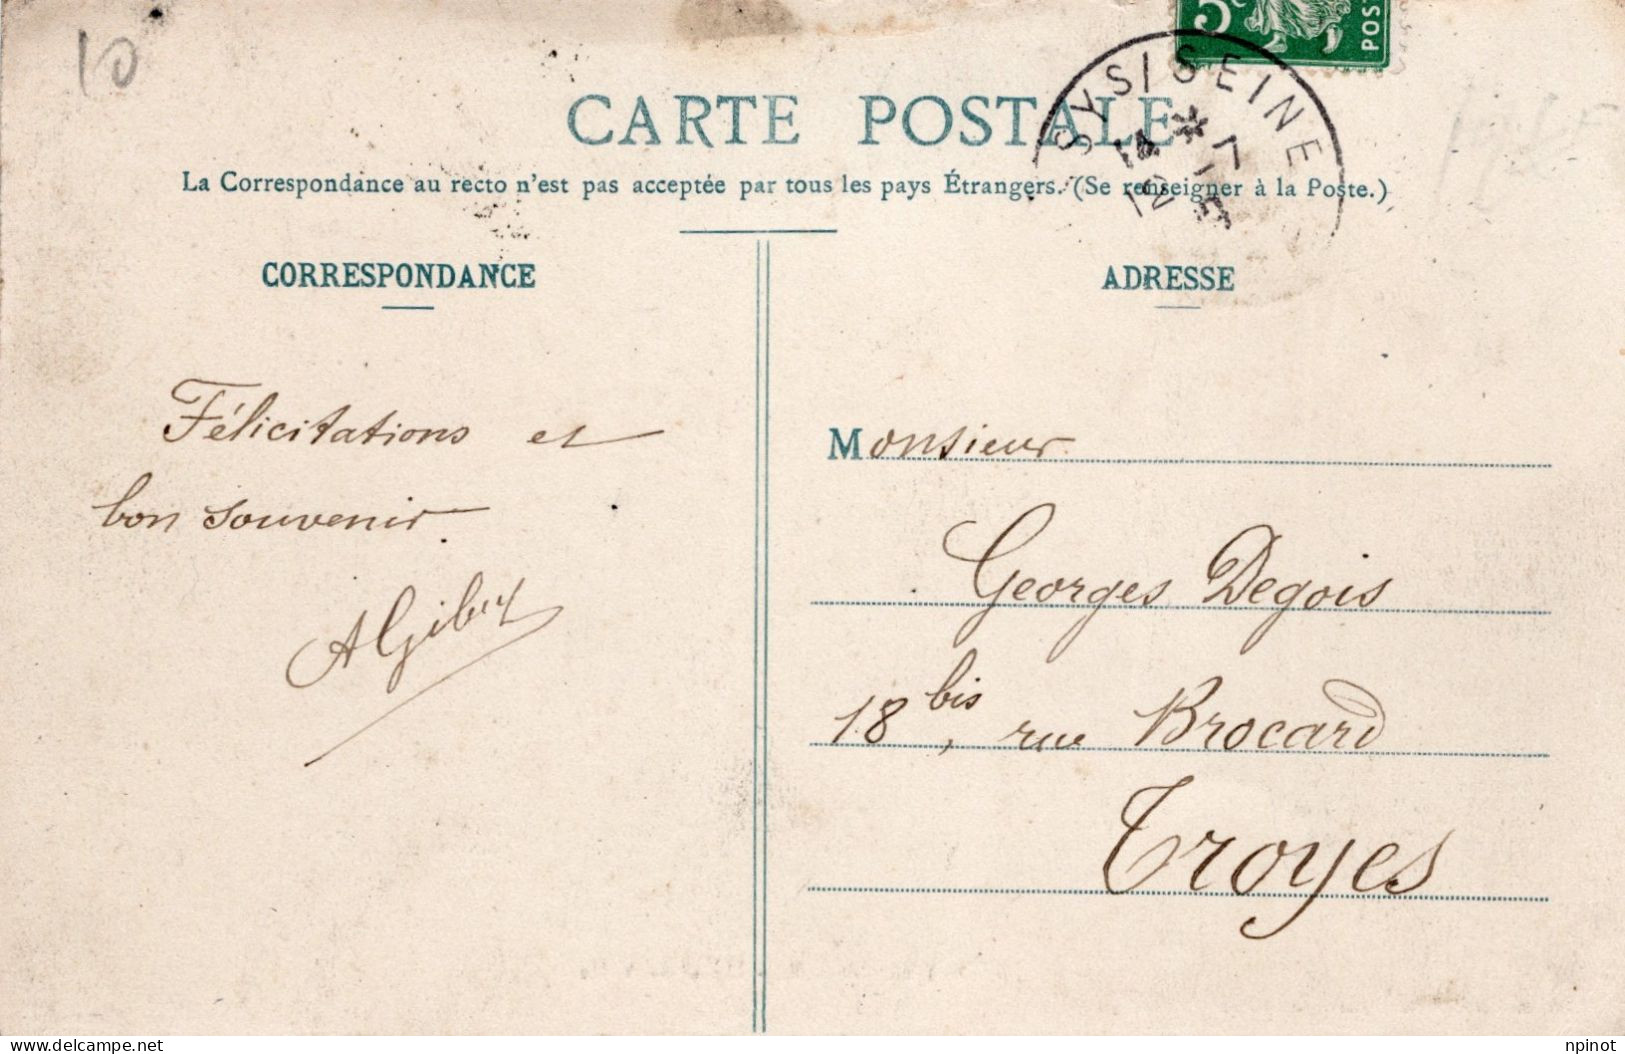 10
5c
POST
SYS/SEINE
14 * 7
12
CARTE POSTALE
La Correspondance au recto n'est pas acceptée par tous les pays Étrangers. (Se renseigner à la Poste.)
CORRESPONDANCE
Félicitations et
bon souvenir.
ADRESSE
Monsieur
Georges Degois
18 bis, rue Brocard
Troyes
npinot